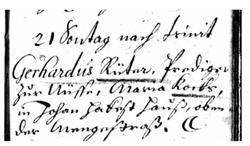 21 Sontag nach Trinit
Gerhardus Rüter, Prediger
zur Müsse, Maria Kocks,
in Johan Habest Hauß, oben
der Mengestraß.